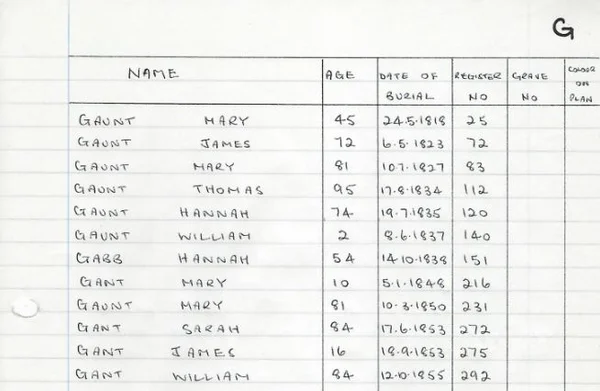 G
NAME AGE DATE OF REGISTER GRAVE COLOUR
BURIAL NO NO ON
PLAN
GAUNT MARY 45 24.5.1818 25
GAUNT JAMES 72 6.5.1823 72
GAUNT MARY 81 10.7.1827 83
GAUNT THOMAS 95 17.8.1834 112
GAUNT HANNAH 74 19.7.1835 120
GAUNT WILLIAM 2 8.6.1837 140
GABB HANNAH 54 14.10.1838 151
GANT MARY 10 5.1.1848 216
GAUNT MARY 81 10.3.1850 231
GANT SARAH 84 17.6.1853 272
GANT JAMES 16 18.9.1853 275
GANT WILLIAM 84 12.10.1855 292